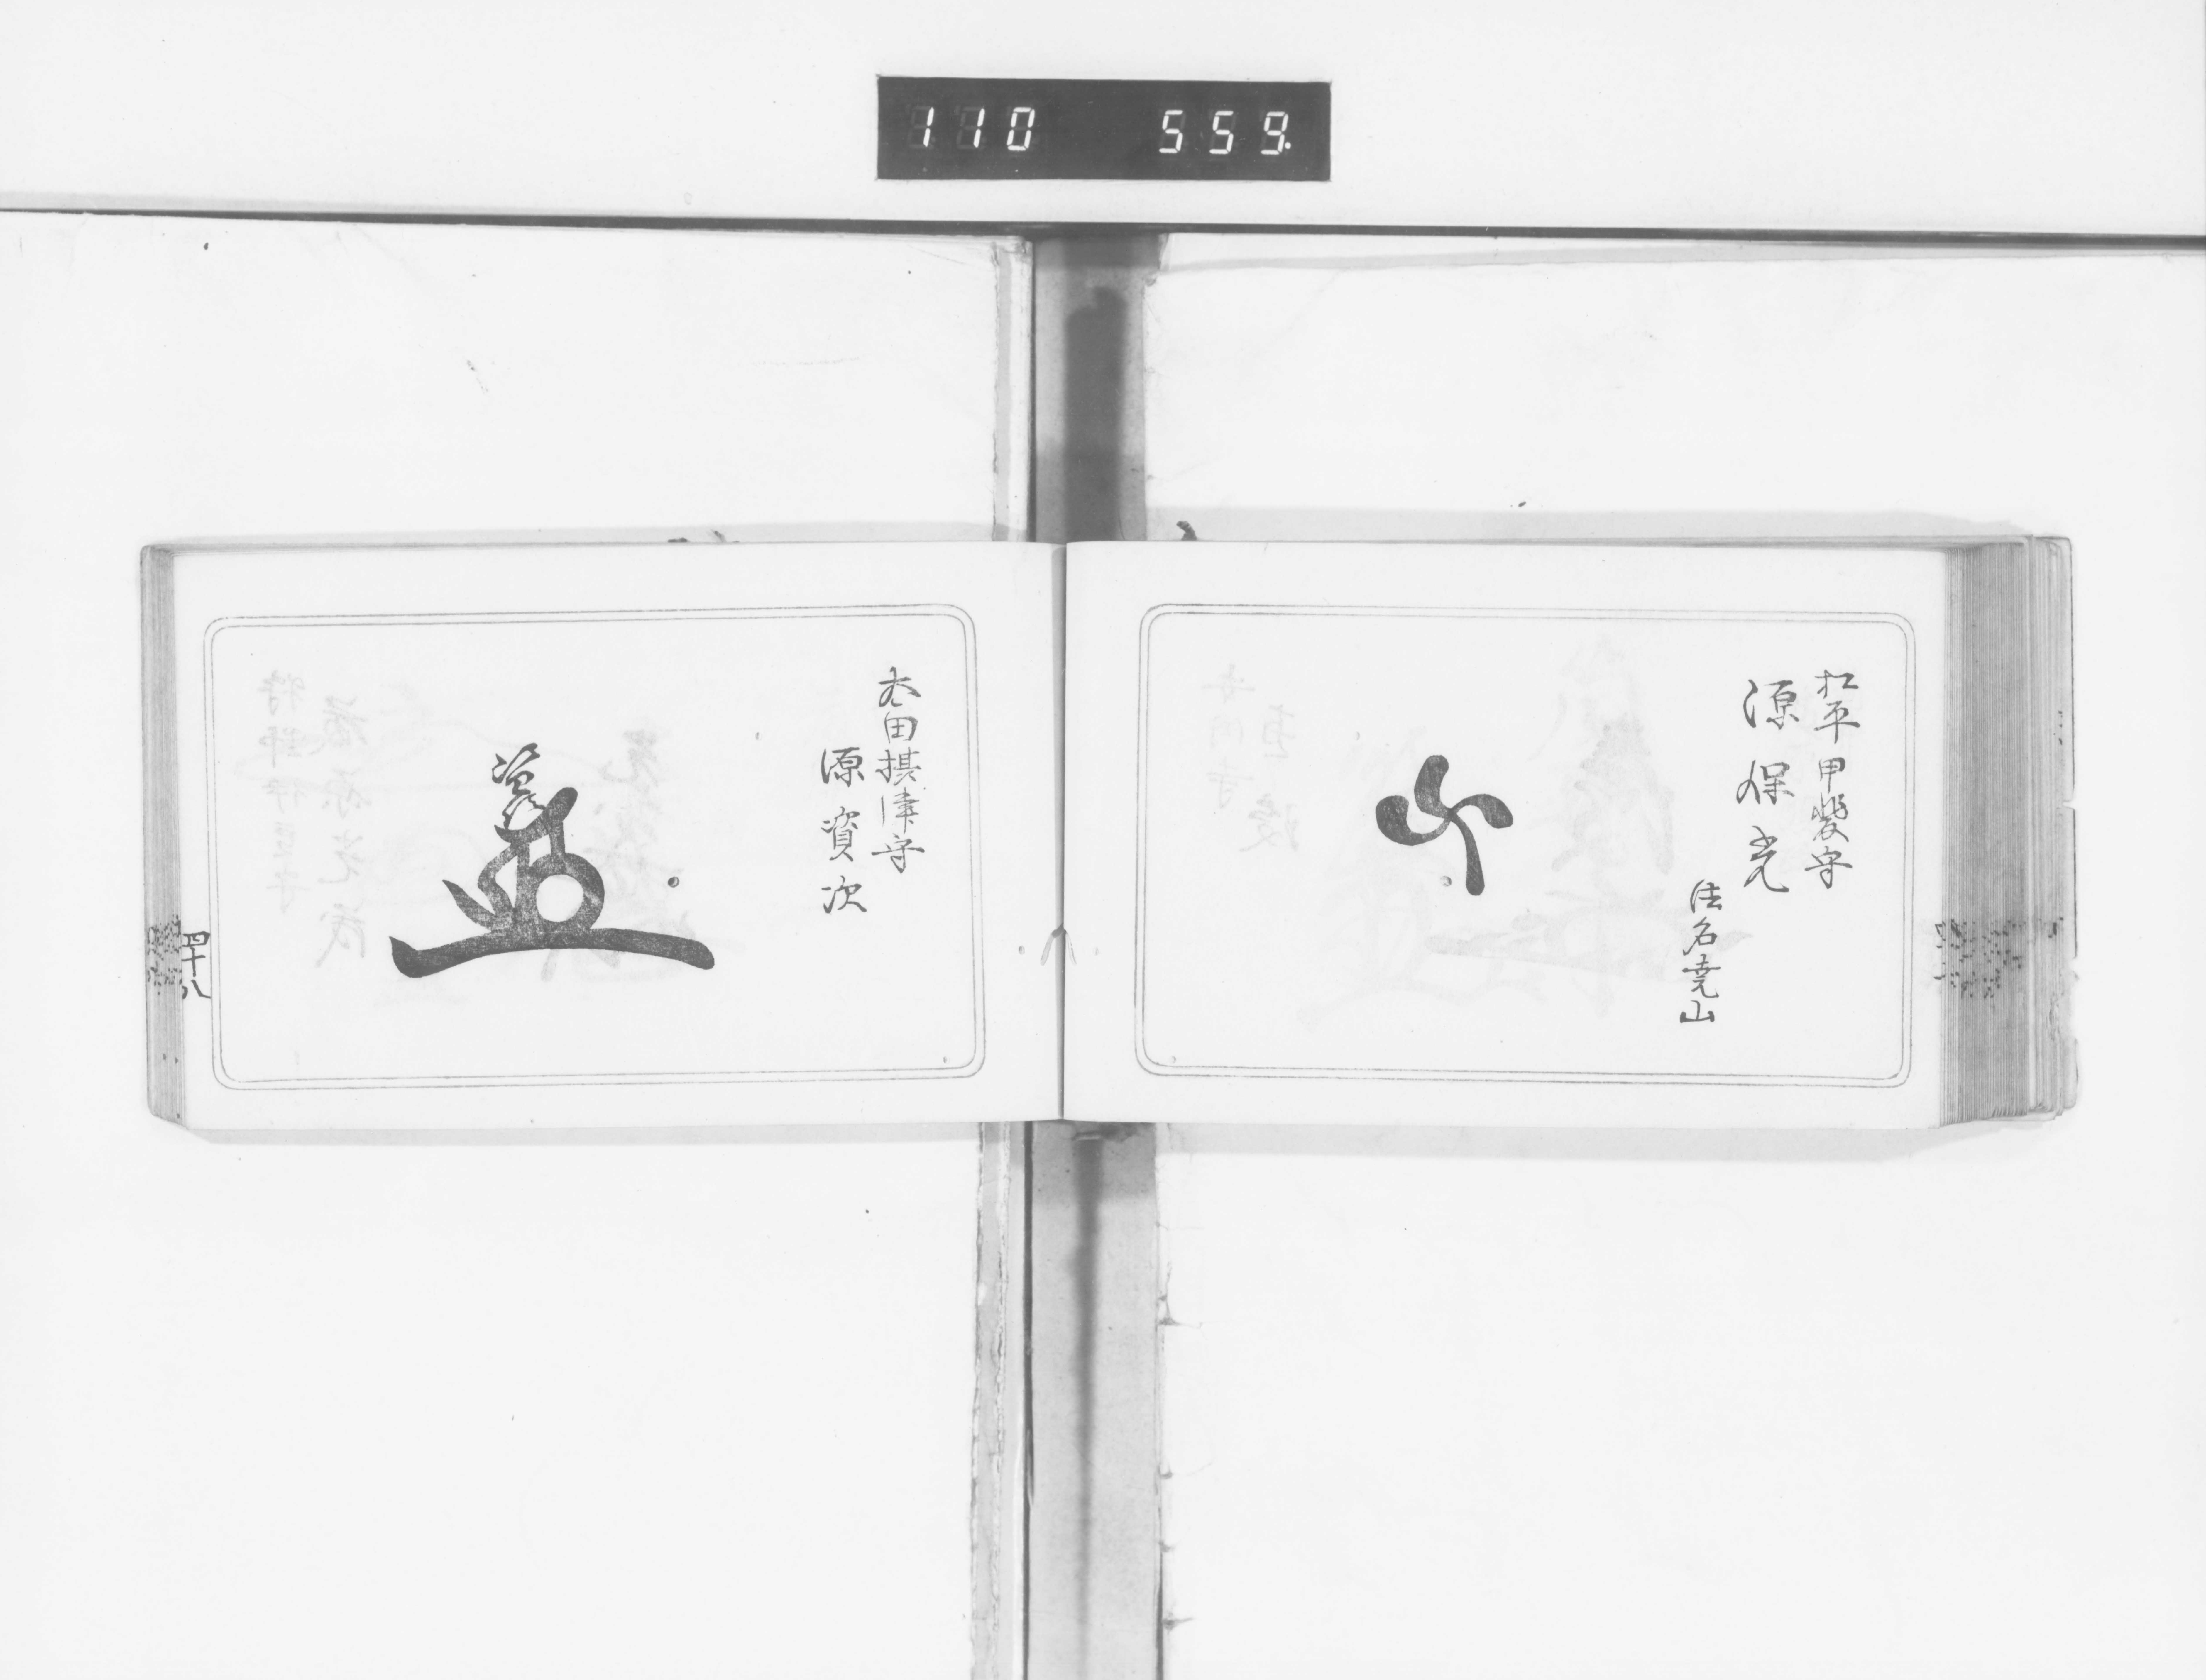 110 559.
松平甲斐守
源保光
法名尭山
太田摂津守
源資次
四十八